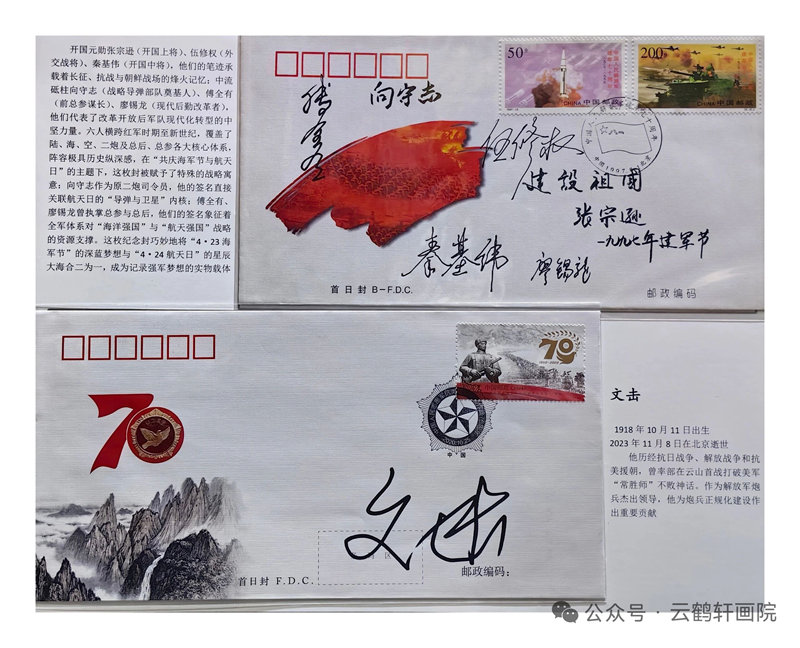 开国元勋张宗逊（开国上将）、伍修权（外
交战将）、秦基伟（开国中将），他们的笔迹承
载着长征、抗战与朝鲜战场的烽火记忆；中流
砥柱向守志（战略导弹部队奠基人）、傅全有
（前总参谋长）、廖锡龙（现代后勤改革者），
他们代表了改革开放后军队现代化转型的中
坚力量。六人横跨红军时期至新世纪，覆盖了
陆、海、空、二炮及总后、总参各大核心体系，
阵容极具历史纵深感，在“共庆海军节与航天
日”的主题下，这枚封被赋予了特殊的战略寓
意：向守志作为原二炮司令员，他的签名直接
关联航天日的“导弹与卫星”内核；傅全有、
廖锡龙曾执掌总参与总后，他们的签名象征着
全军体系对“海洋强国”与“航天强国”战略
的资源支撑。这枚纪念封巧妙地将“4·23海
军节”的深蓝梦想与“4·24航天日”的星辰
大海合二为一，成为记录强军梦想的实物载体
50分
CHINA 中国邮政
200分
CHINA 中国邮政
傅全有
向守志
伍修权
建设祖国
张宗逊
一九九七年建军节
秦基伟
廖锡龙
八一
中国 1997.8.1 北京
首日封 B-F.D.C.
邮政编码
70
70
2020.10.25
中·国
文击
首日封 F.D.C.
邮政编码：
文击
1918年10月11日出生
2023年11月8日在北京逝世
他历经抗日战争、解放战争和抗
美援朝，曾率部在云山首战打破美军
“常胜师”不败神话。作为解放军炮
兵杰出领导，他为炮兵正规化建设作
出重要贡献
公众号·云鹤轩画院